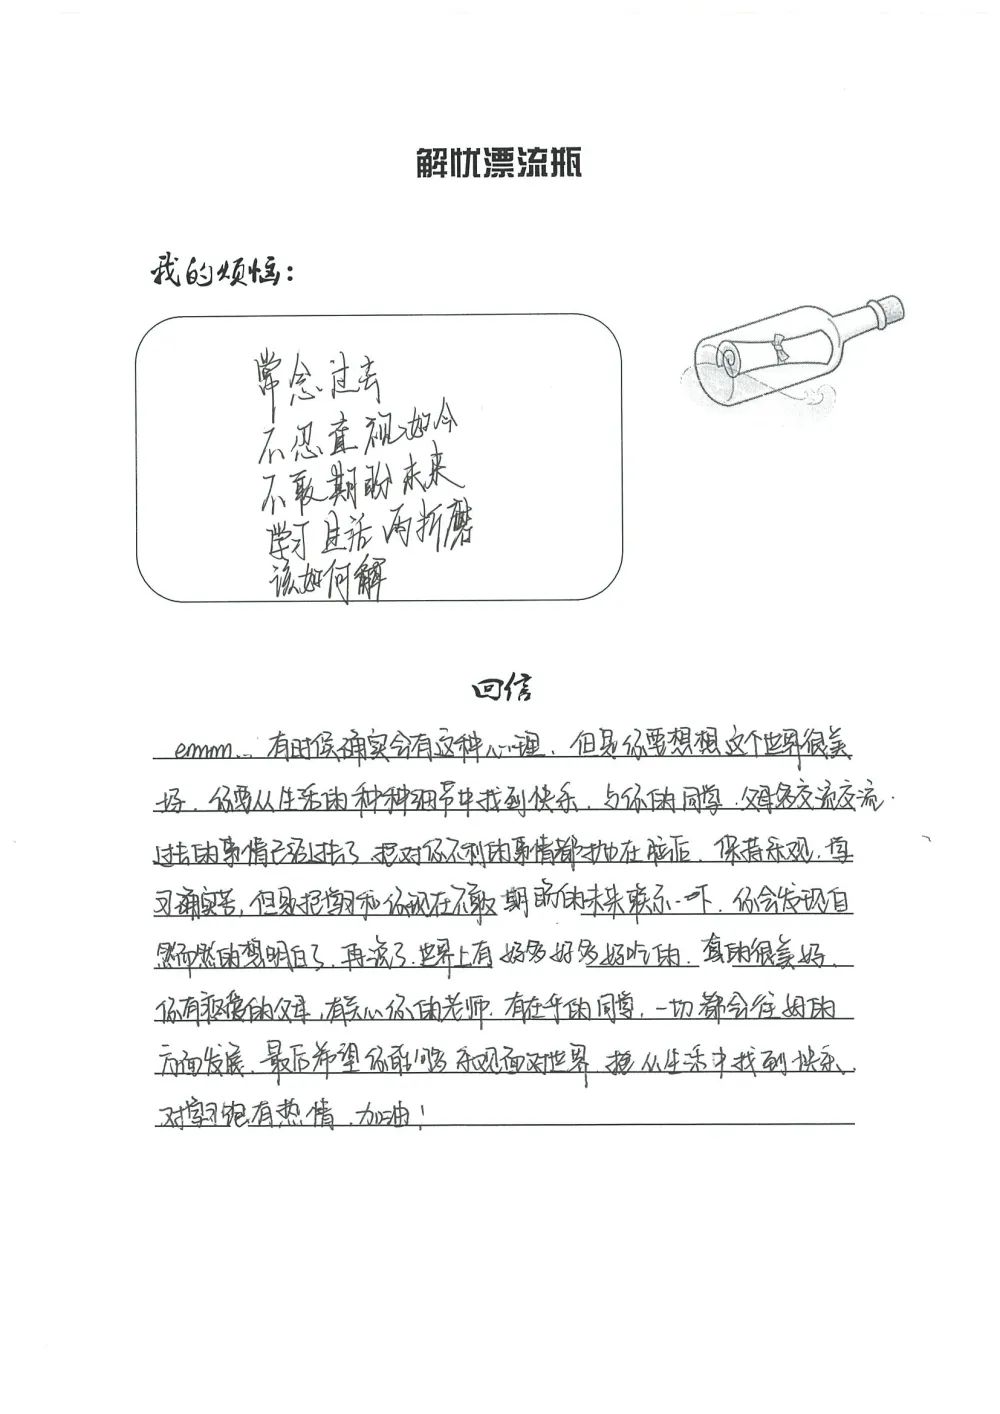 解忧漂流瓶
我的烦恼：
常念过去
不忍直视如今
不敢期盼未来
学习生活两折磨
该如何解
回信
emmm... 有时候确实会有这种心理，但是你要想想这个世界很美
好，你要从生活的种种细节中找到快乐，与你的同学、父母多交流交流．
过去的事情已经过去了，把对你不利的事情都抛在脑后，保持乐观，学
习确实苦，但是把学习和你现在不敢期盼的未来联系一下，你会发现自
然而然的想明白了，再说了，世界上有好多好多好吃的，真的很美好，
你有疼爱的父母，有关心你的老师，有在乎的同学，一切都会往好的
方面发展，最后希望你能够乐观面对世界，从生活中找到快乐，
对学习饱有热情，加油！